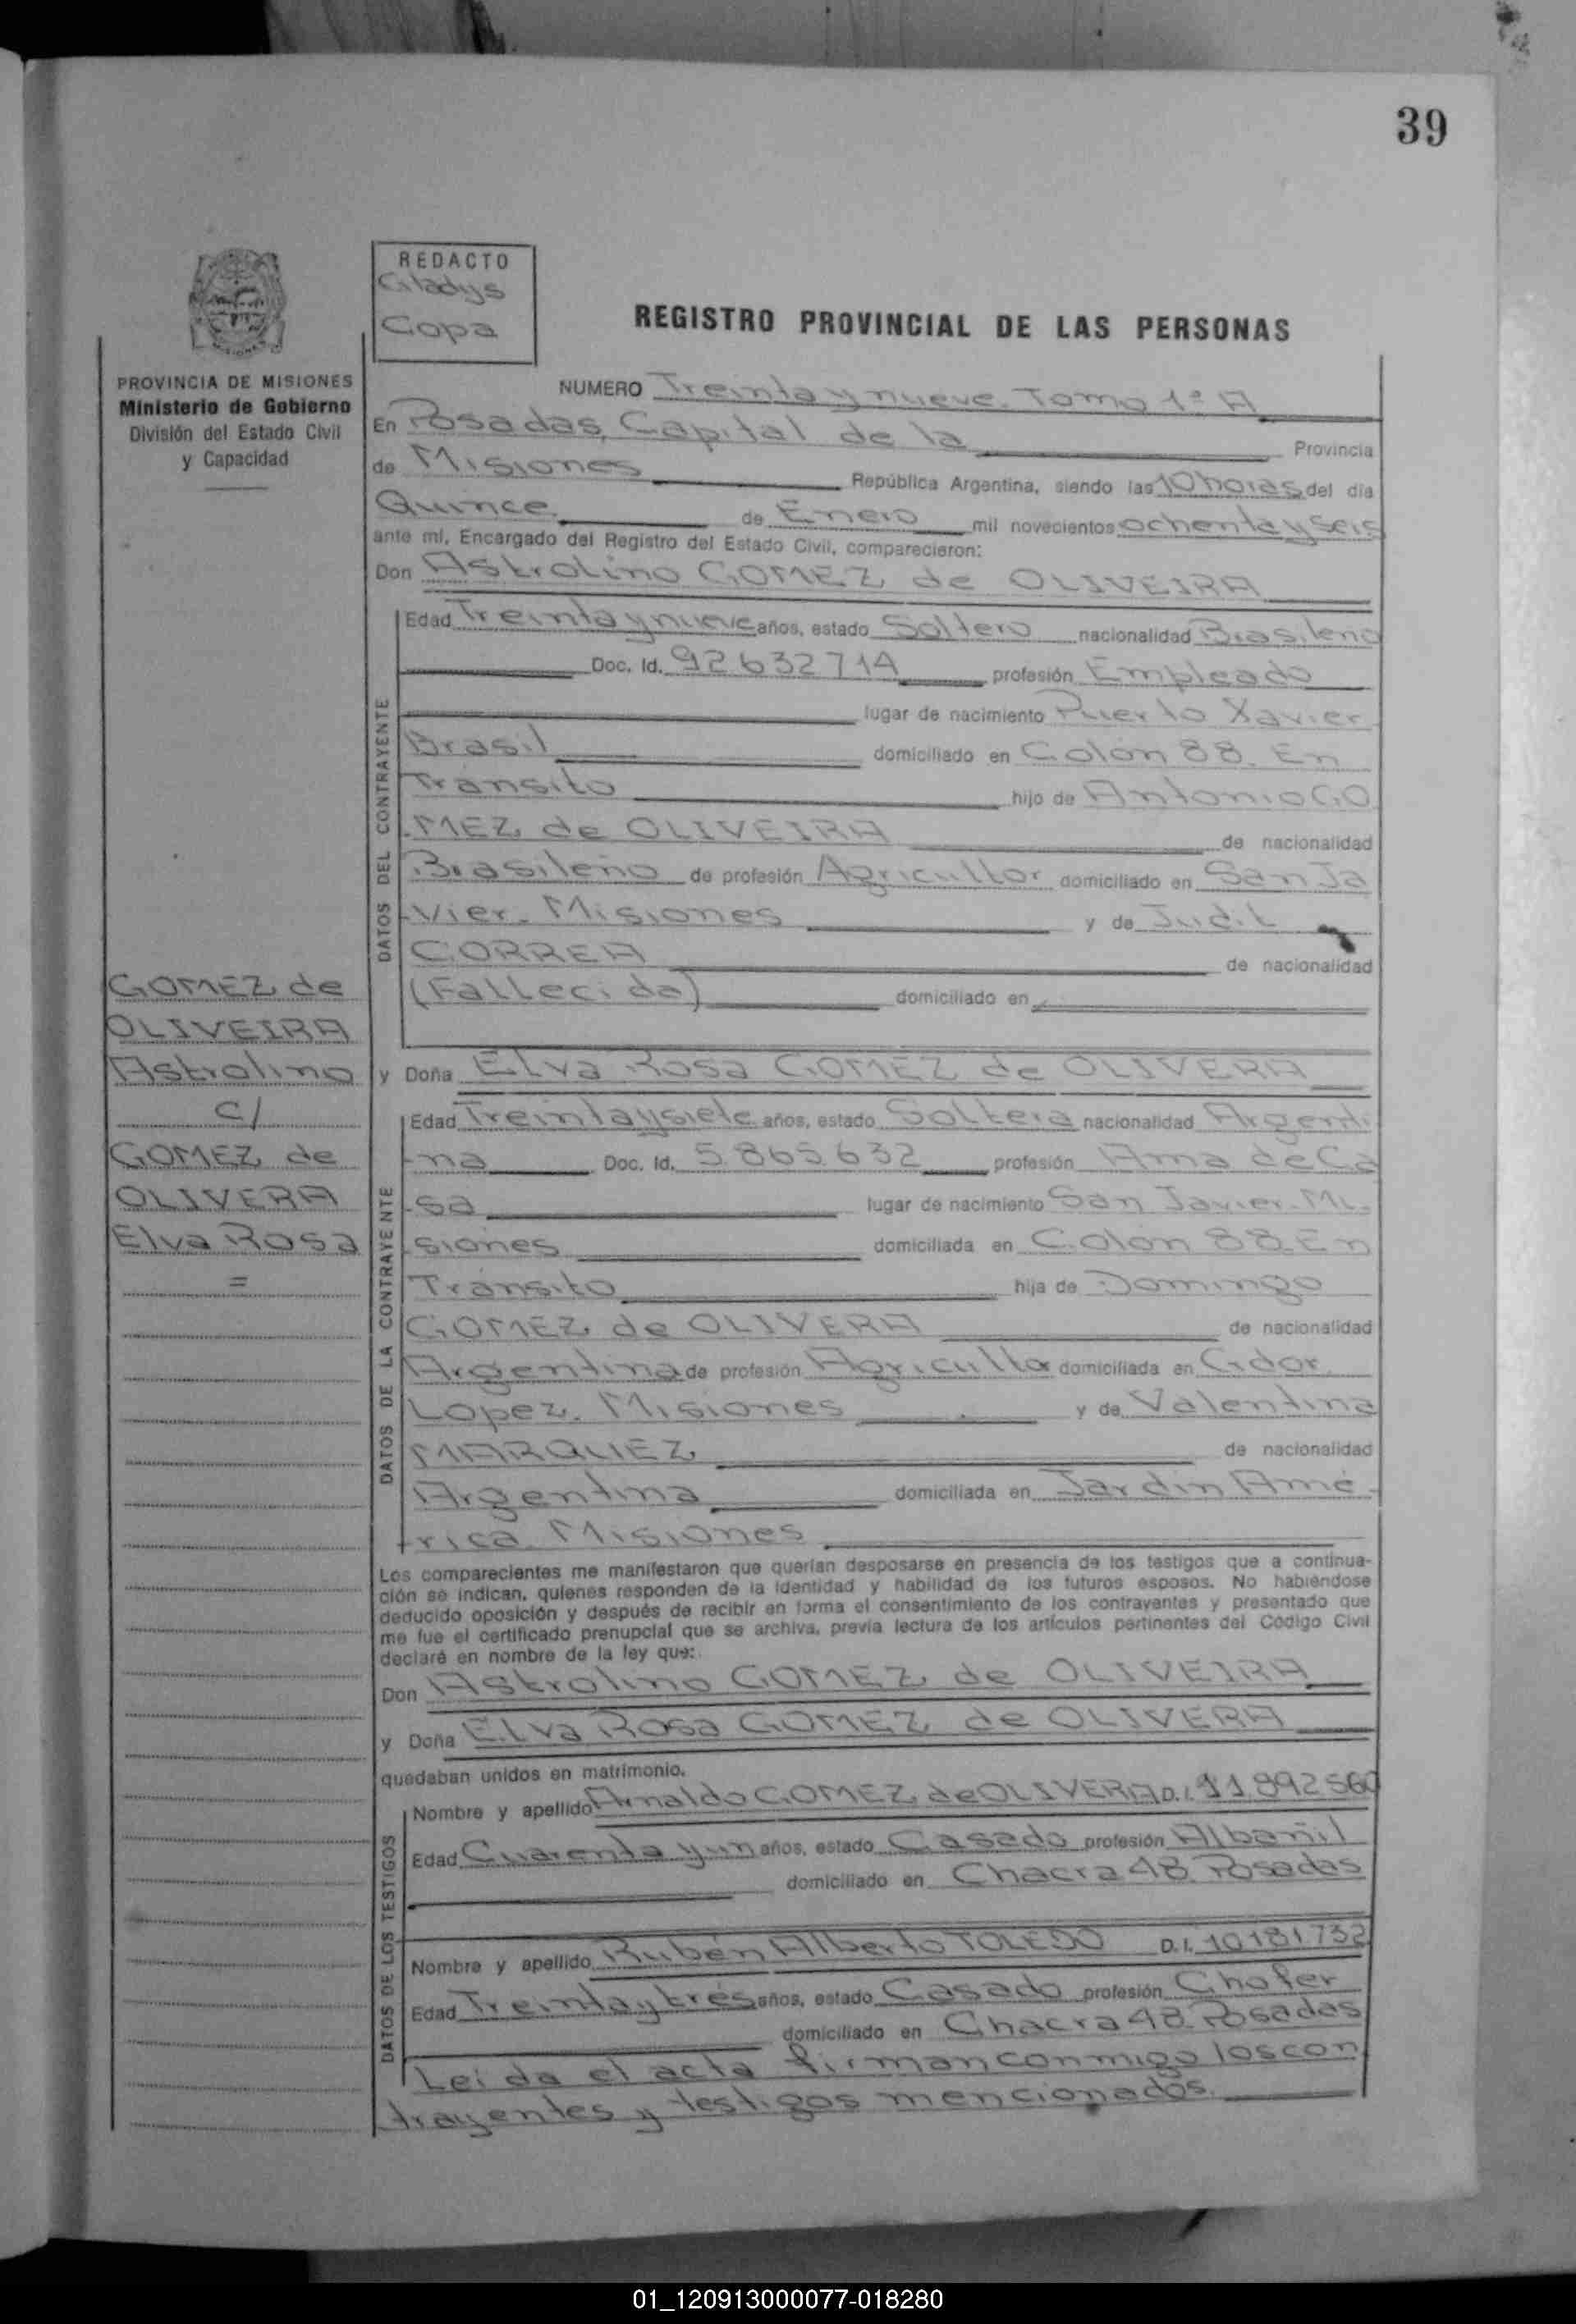 39
REDACTO
Gladys
Copa
REGISTRO PROVINCIAL DE LAS PERSONAS
PROVINCIA DE MISIONES
Ministerio de Gobierno
División del Estado Civil
y Capacidad
NUMERO Treinta y nueve. Tomo 1º A
En Posadas, Capital de la Provincia
de Misiones República Argentina, siendo las 10 horas del día
Quince de Enero mil novecientos ochenta y seis
ante mí, Encargado del Registro del Estado Civil, comparecieron:
Don Astrolino GOMEZ de OLIVEIRA
DATOS DEL CONTRAYENTE
Edad Treinta y nueve años, estado Soltero nacionalidad Brasileno
Doc. Id. 92632714 profesión Empleado
lugar de nacimiento Puerto Xavier
Brasil domiciliado en Colón 88. En
Transito hijo de Antonio GO
MEZ de OLIVEIRA de nacionalidad
Brasileño de profesión Agricultor domiciliado en San Ja
vier. Misiones y de Judit
CORREA de nacionalidad
(Fallecida) domiciliado en
GOMEZ de
OLIVEIRA
Astrolino
c/
GOMEZ de
OLIVERA
Elva Rosa
=
y Doña Elva Rosa GOMEZ de OLIVERA
DATOS DE LA CONTRAYENTE
Edad Treinta y siete años, estado Soltera nacionalidad Argenti
na Doc. Id. 5.865.632 profesión Ama de Ca
sa lugar de nacimiento San Javier. Mi
siones domiciliada en Colón 88. En
Transito hija de Domingo
GOMEZ de OLIVERA de nacionalidad
Argentina de profesión Agricultor domiciliada en Gdor.
Lopez. Misiones y de Valentina
MARQUEZ de nacionalidad
Argentina domiciliada en Jardín Amé
rica. Misiones
Los comparecientes me manifestaron que querían desposarse en presencia de los testigos que a continua-
ción se indican, quienes responden de la identidad y habilidad de los futuros esposos. No habiéndose
deducido oposición y después de recibir en forma el consentimiento de los contrayentes y presentado que
me fue el certificado prenupcial que se archiva, previa lectura de los artículos pertinentes del Código Civil
declaré en nombre de la ley que:
Don Astrolino GOMEZ de OLIVEIRA
y Doña Elva Rosa GOMEZ de OLIVERA
quedaban unidos en matrimonio.
DATOS DE LOS TESTIGOS
Nombre y apellido Arnaldo GOMEZ de OLIVERA D.I. 11.892560
Edad Cuarenta y un años, estado Casado profesión Albañil
domiciliado en Chacra 48. Posadas
Nombre y apellido Rubén Alberto TOLEDO D.I. 10181732
Edad Treinta y tres años, estado Casado profesión Chofer
domiciliado en Chacra 48. Posadas
Leida el acta firman conmigo los con
trayentes y testigos mencionados.
01_120913000077-018280